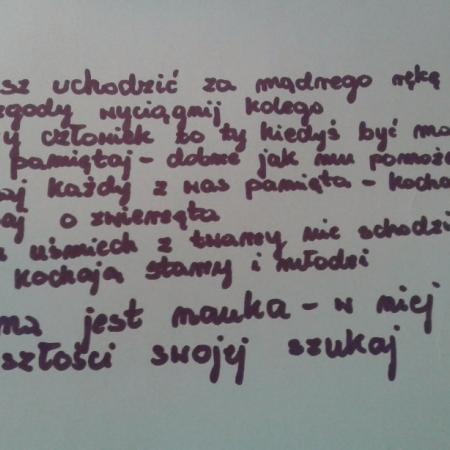 sz uchodzić za mądrego rękę
zgody wyciągnij kolego
y człowiek to ty kiedyś być mo
pamiętaj - dobrze jak mu pomoże
aj każdy z nas pamięta - kocha
aj o zwierzęta
uśmiech z twarzy nie schodzi
kochają starzy i młodzi
na jest nauka - w niej
szłości swojej szukaj